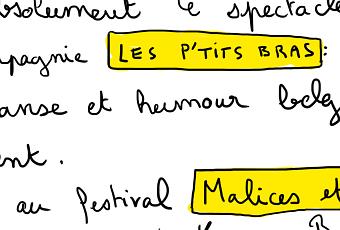 absolument le spectacle
mpagnie LES P'TITS BRAS:
danse et humour belg
ent.
au festival Malices et